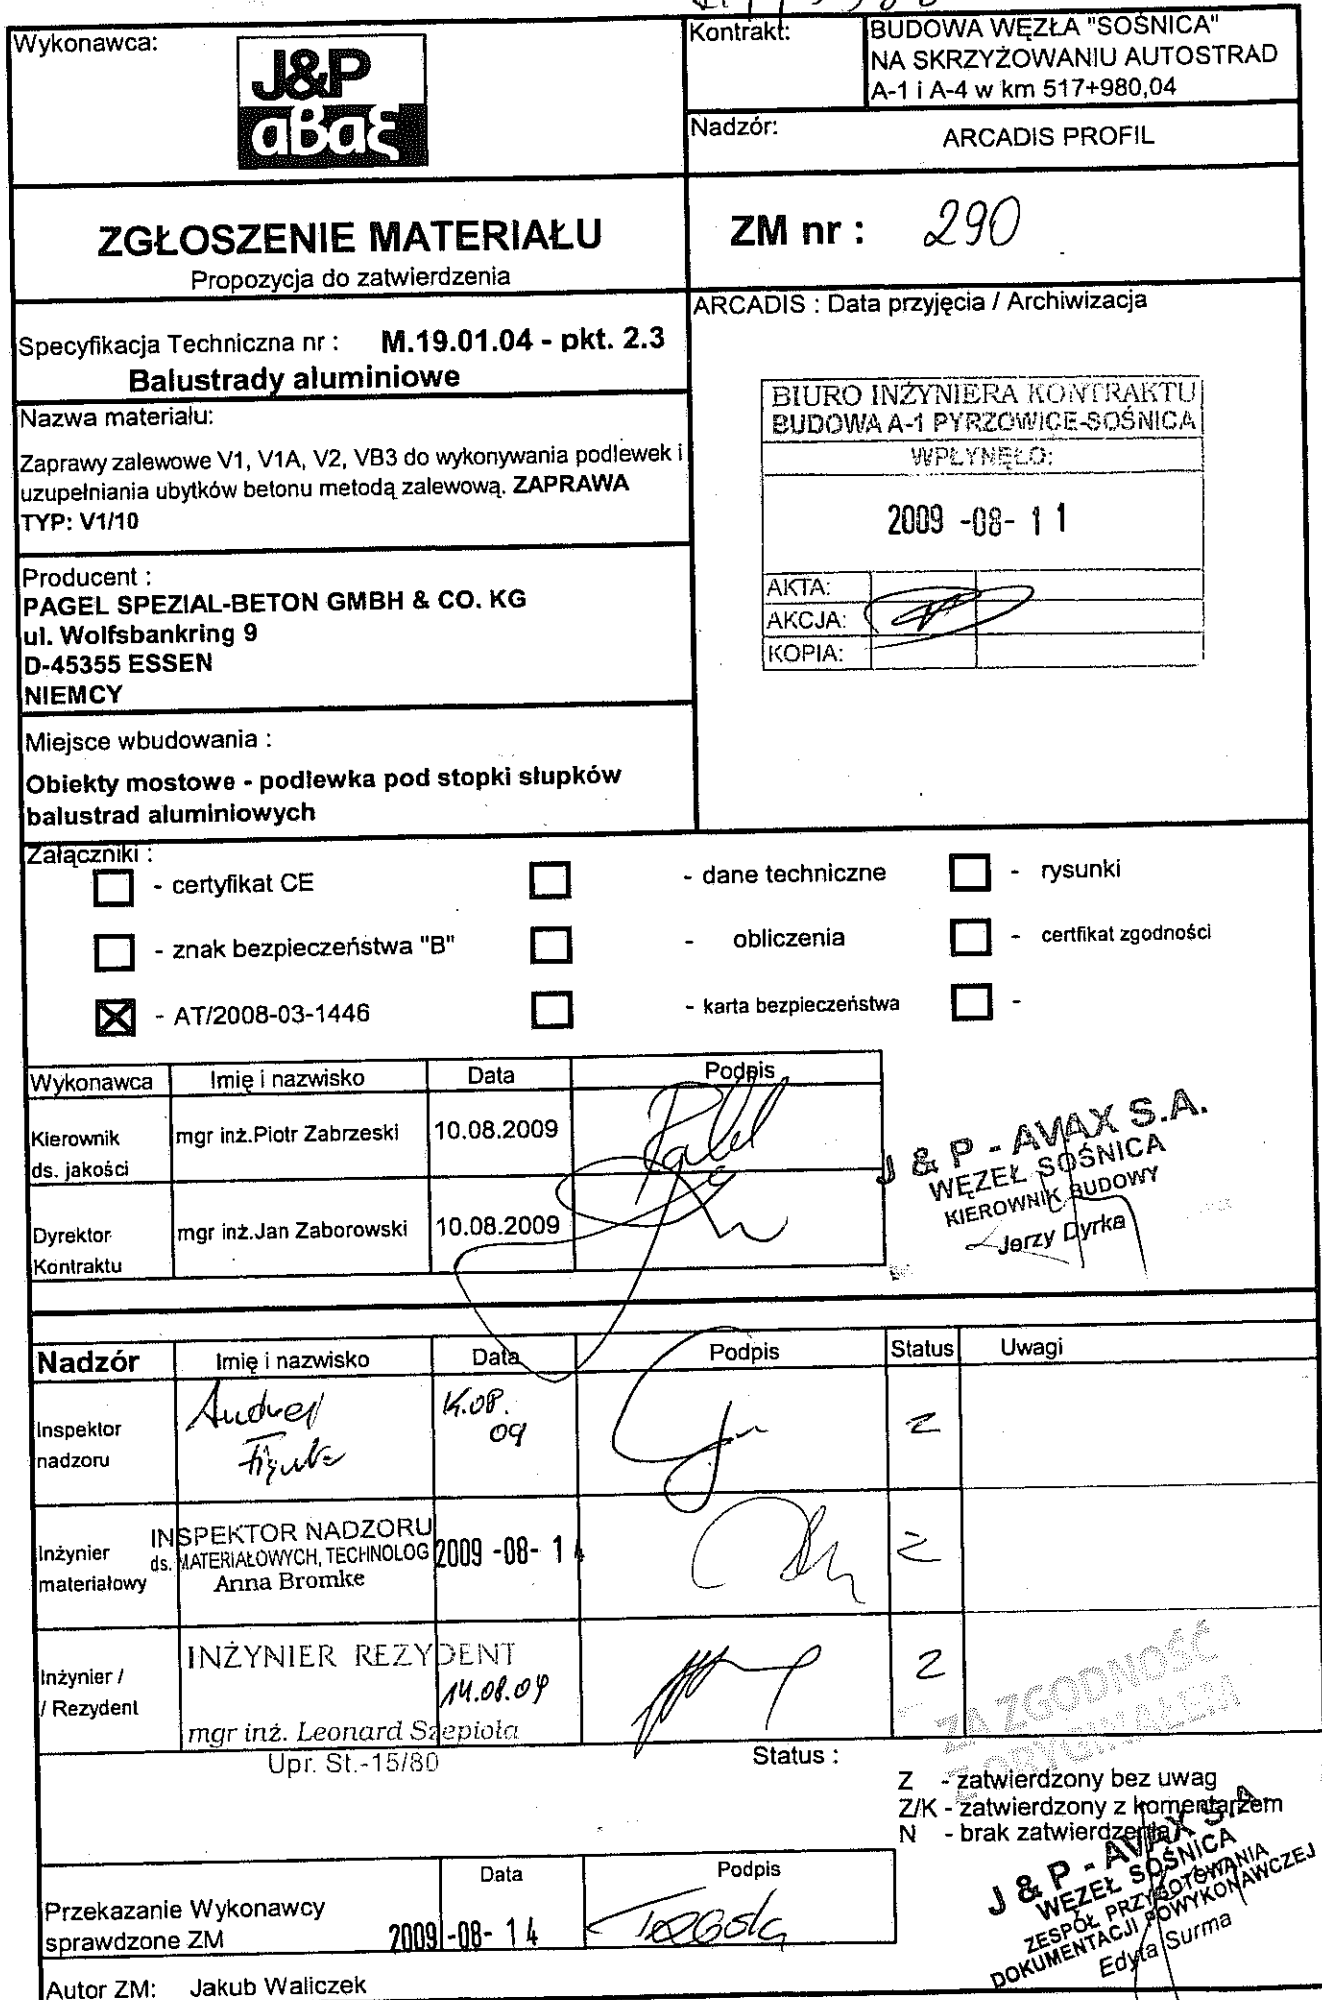 Wykonawca:
J&P
aBaξ
Kontrakt:
BUDOWA WĘZŁA "SOŚNICA"
NA SKRZYŻOWANIU AUTOSTRAD
A-1 i A-4 w km 517+980,04
Nadzór:
ARCADIS PROFIL
ZGŁOSZENIE MATERIAŁU
Propozycja do zatwierdzenia
ZM nr : 290
Specyfikacja Techniczna nr : M.19.01.04 - pkt. 2.3
Balustrady aluminiowe
ARCADIS : Data przyjęcia / Archiwizacja
BIURO INŻYNIERA KONTRAKTU
BUDOWA A-1 PYRZOWICE-SOŚNICA
WPŁYNĘŁO:
2009 -08- 1 1
AKTA:
AKCJA:
KOPIA:
Nazwa materiału:
Zaprawy zalewowe V1, V1A, V2, VB3 do wykonywania podlewek i
uzupełniania ubytków betonu metodą zalewową. ZAPRAWA
TYP: V1/10
Producent :
PAGEL SPEZIAL-BETON GMBH & CO. KG
ul. Wolfsbankring 9
D-45355 ESSEN
NIEMCY
Miejsce wbudowania :
Obiekty mostowe - podlewka pod stopki słupków
balustrad aluminiowych
Załączniki :
- certyfikat CE
- dane techniczne
- rysunki
- znak bezpieczeństwa "B"
- obliczenia
- certfikat zgodności
- AT/2008-03-1446
- karta bezpieczeństwa
-
Wykonawca Imię i nazwisko Data Podpis
Kierownik
ds. jakości
mgr inż.Piotr Zabrzeski 10.08.2009
Dyrektor
Kontraktu
mgr inż.Jan Zaborowski 10.08.2009
J & P - AVAX S.A.
WĘZEŁ SOŚNICA
KIEROWNIK BUDOWY
Jerzy Dyrka
Nadzór Imię i nazwisko Data Podpis Status Uwagi
Inspektor
nadzoru
Z
Inżynier
materiałowy
INSPEKTOR NADZORU
ds. MATERIAŁOWYCH, TECHNOLOG
Anna Bromke
2009 -08- 1 4
Z
Inżynier /
/ Rezydent
INŻYNIER REZYDENT
14.08.09
mgr inż. Leonard Szepiola
Upr. St.-15/80
Z
ZA ZGODNOŚĆ
Z ORYGINAŁEM
Status :
Z - zatwierdzony bez uwag
Z/K - zatwierdzony z komentarzem
N - brak zatwierdzenia
J & P - AVAX S.A.
WĘZEŁ SOŚNICA
ZESPÓŁ PRZYGOTOWANIA
DOKUMENTACJI POWYKONAWCZEJ
Edyta Surma
Data Podpis
Przekazanie Wykonawcy
sprawdzone ZM
2009 -08- 1 4
Autor ZM: Jakub Waliczek